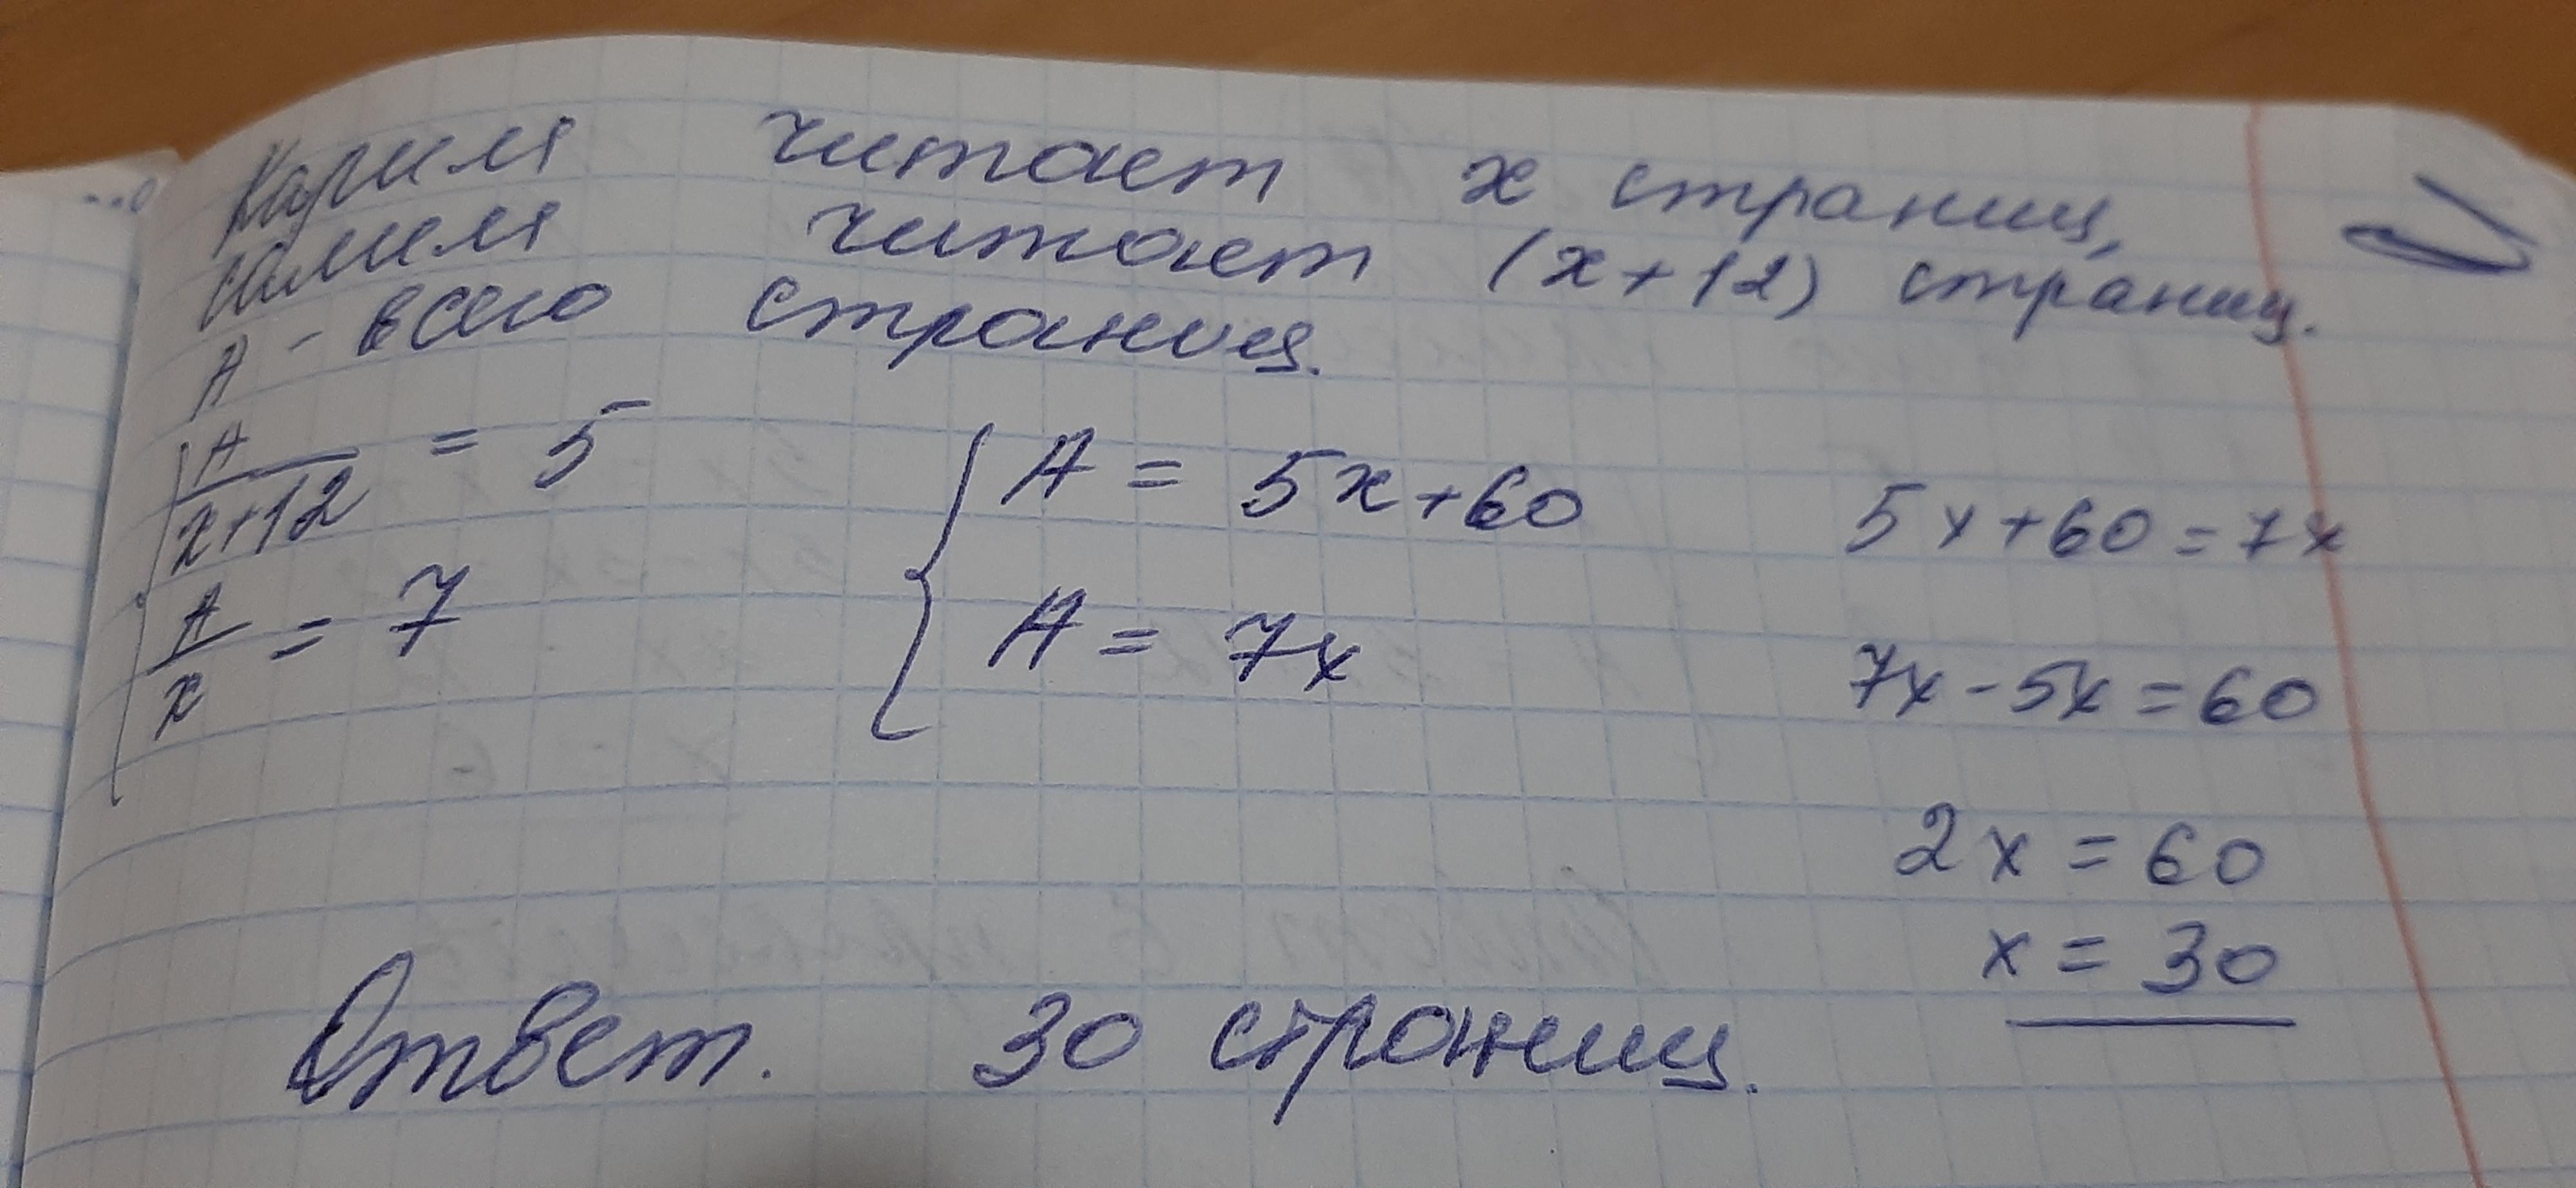 Карим читает x страниц,
Салим читает (x+12) страниц.
A - всего страниц.
A/(x+12) = 5
A/x = 7
{ A = 5x+60
A = 7x
5x+60=7x
7x-5x=60
2x=60
x=30
Ответ. 30 страниц.